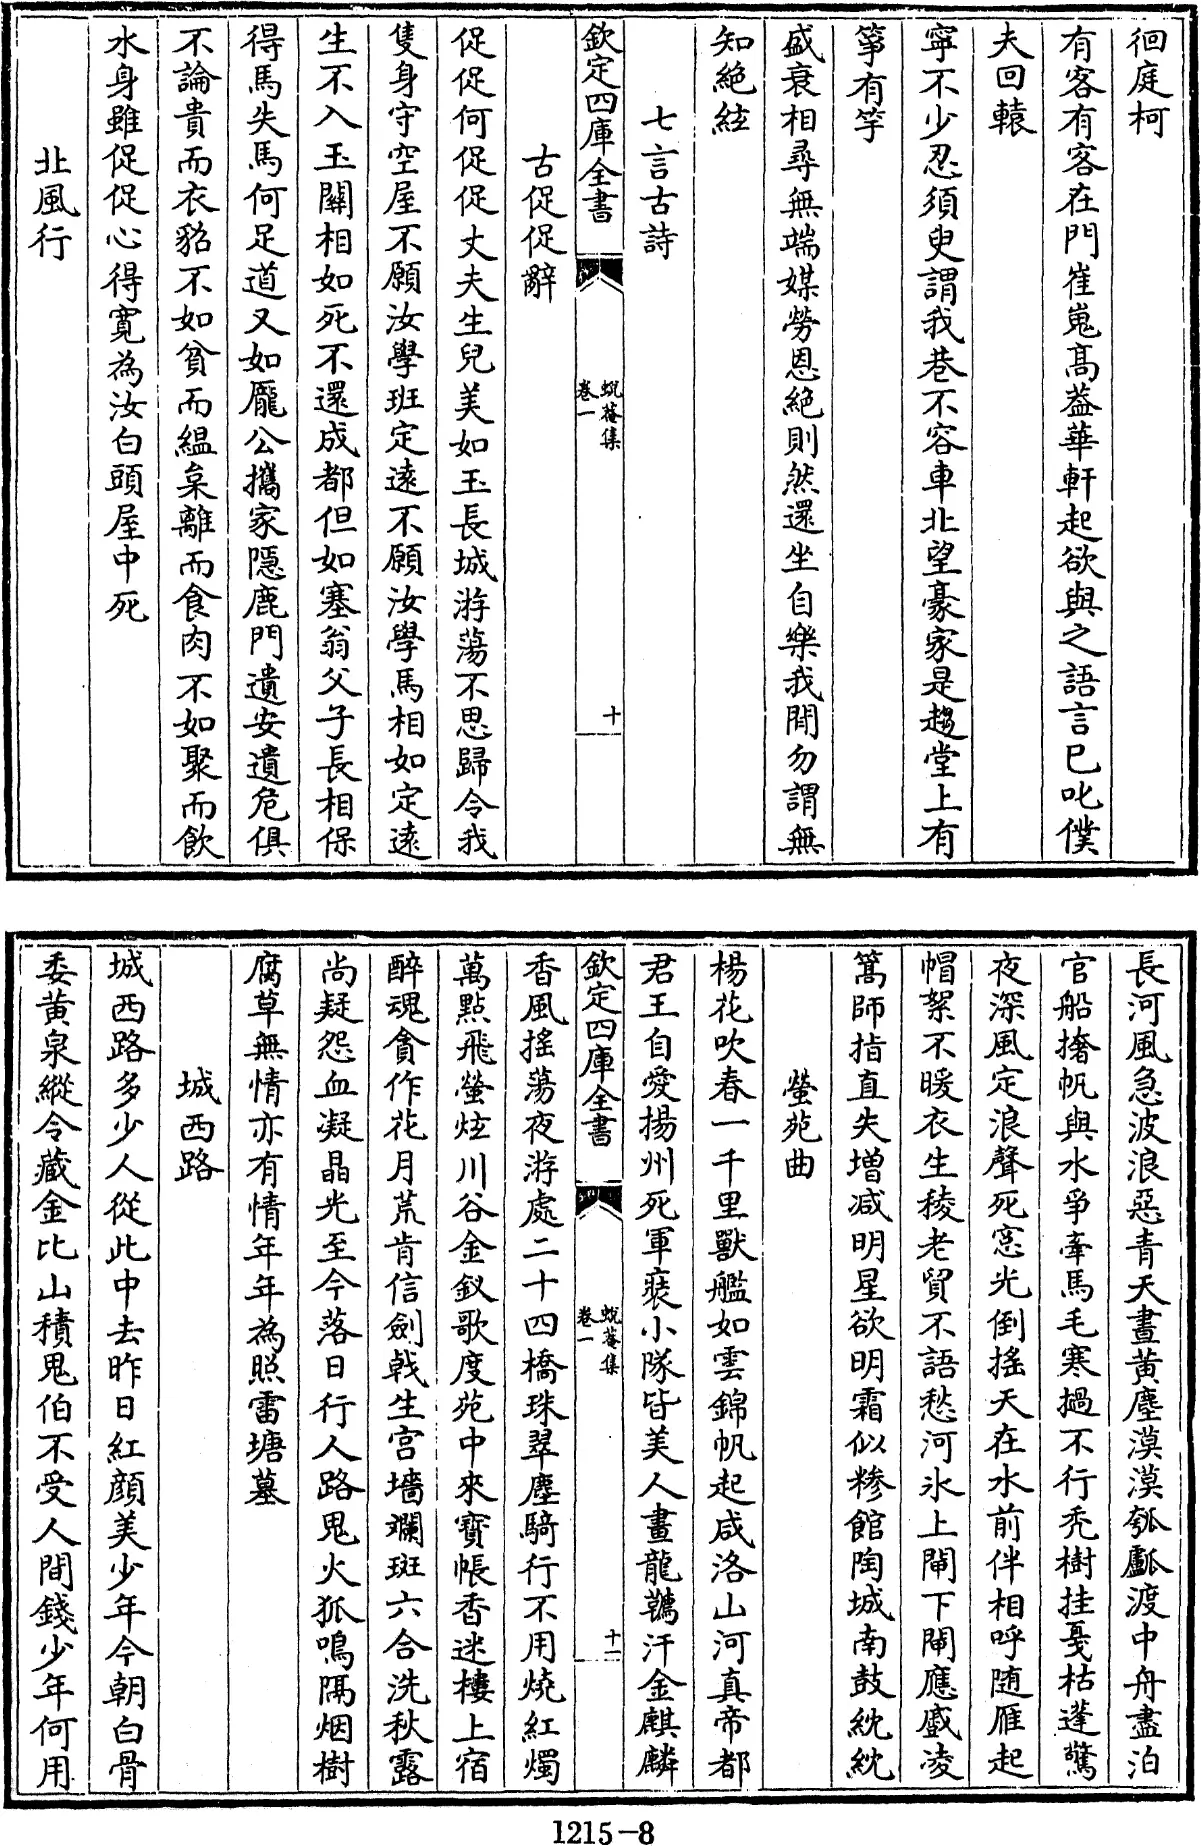 徊庭柯
有客有客在門崔嵬高葢華軒起欲與之語言已叱僕
夫回轅
寧不少忍須臾謂我巷不容車北望豪家是趨堂上有
箏有竽
盛衰相尋無端媒勞恩絶則然還坐自樂我閒勿謂無
知絶絃
七言古詩
欽定四庫全書
蛻菴集
卷一
十
古促促辭
促促何促促丈夫生兒美如玉長城游蕩不思歸令我
隻身守空屋不願汝學班定遠不願汝學馬相如定遠
生不入玉關相如死不還成都但如塞翁父子長相保
得馬失馬何足道又如龐公攜家隱鹿門遺安遺危俱
不論貴而衣貂不如貧而緼枲離而食肉不如聚而飲
水身雖促促心得寛為汝白頭屋中死
北風行
長河風急波浪惡青天晝黄塵漠漠瓠㼖渡中舟盡泊
官船撦帆與水爭牽馬毛寒撾不行秃樹挂戞枯蓬驚
夜深風定浪聲死窓光倒摇天在水前伴相呼随雁起
帽絮不暖衣生稜老貿不語愁河氷上閘下閘應盛凌
篙師指直失增减明星欲明霜似糁館陶城南鼓紞紞
螢苑曲
楊花吹春一千里獸艦如雲錦帆起咸洛山河真帝都
君王自愛揚州死軍裝小隊皆美人畫龍韉汗金麒麟
欽定四庫全書
蛻菴集
卷一
十一
香風摇蕩夜游處二十四橋珠翠塵騎行不用燒紅燭
萬點飛螢炫川谷金釵歌度苑中來寳帳香迷樓上宿
醉魂貪作花月荒肯信劍戟生宫墻斕斑六合洗秋露
尚疑怨血凝晶光至今落日行人路鬼火狐鳴隔烟樹
腐草無情亦有情年年為照雷塘墓
城西路
城西路多少人從此中去昨日紅顔美少年今朝白骨
委黄泉縱令藏金比山積鬼伯不受人間錢少年何用
1215-8